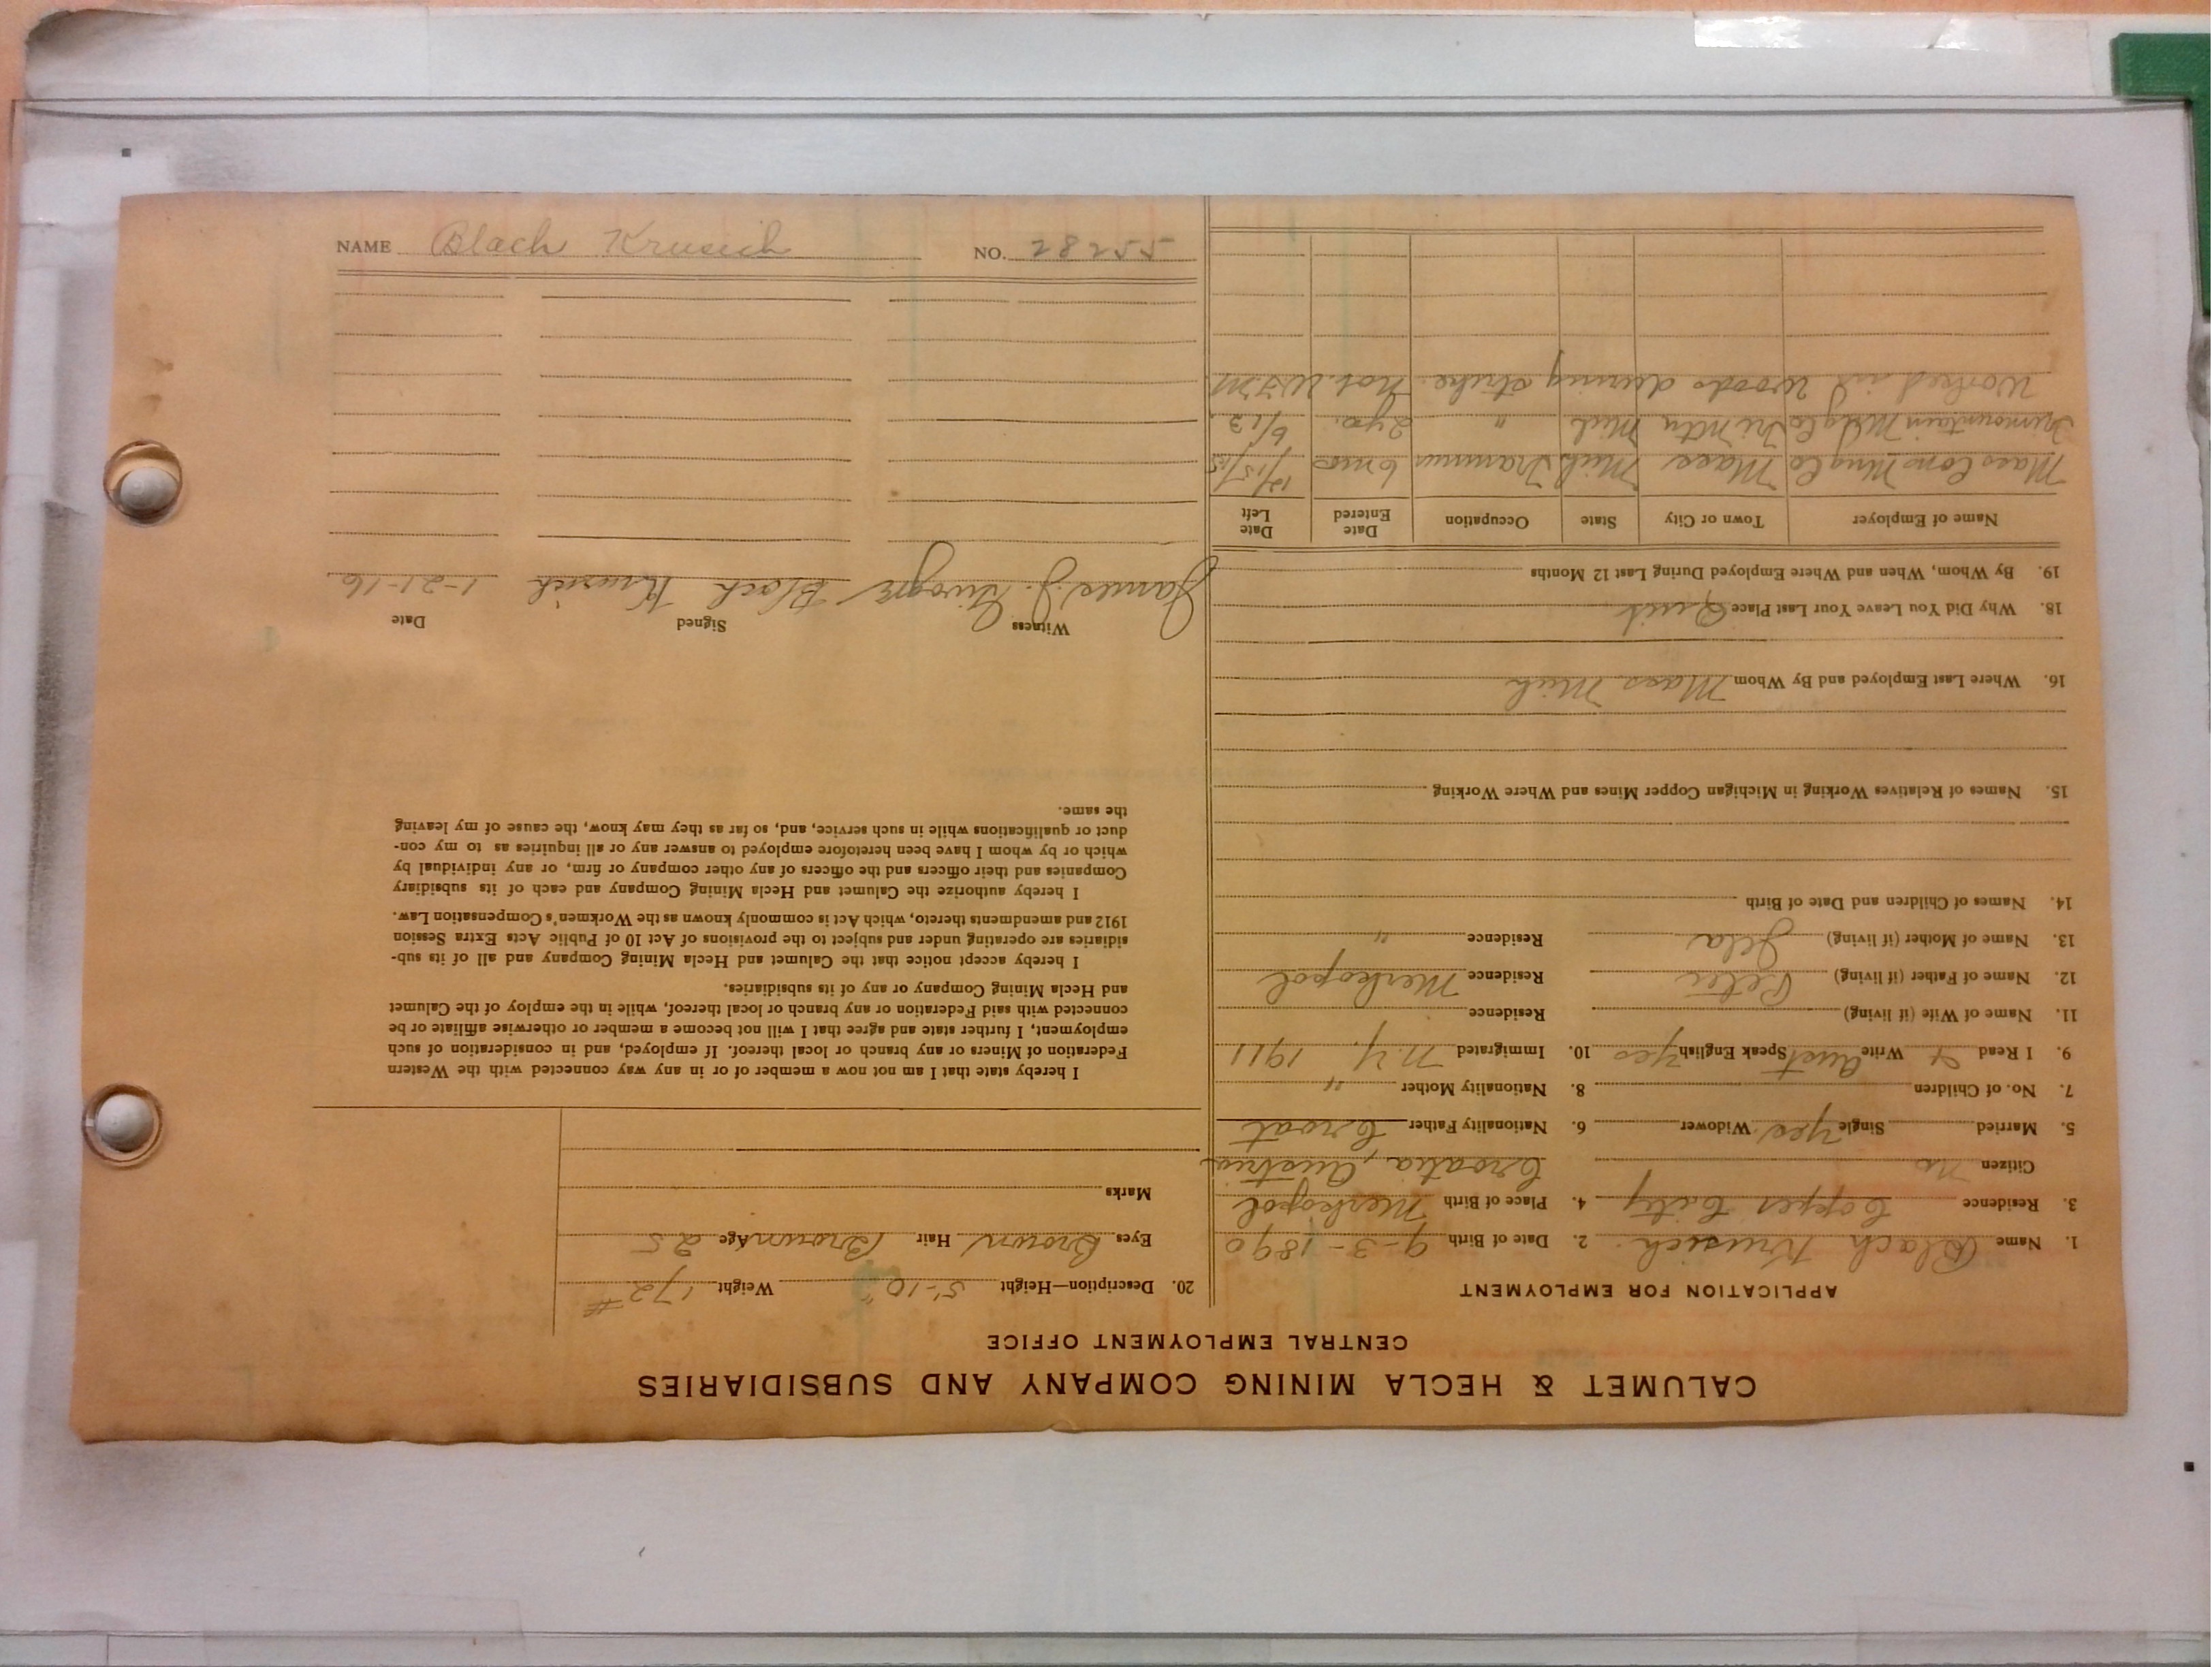 CALUMET & HECLA MINING COMPANY AND SUBSIDIARIES
CENTRAL EMPLOYMENT OFFICE
APPLICATION FOR EMPLOYMENT
1. Name Blach Krusich 2. Date of Birth 9-3-1890
3. Residence Copper City 4. Place of Birth Merkopol
Citizen no Croatia, Austria
5. Married Single yes Widower 6. Nationality Father Croat
7. No. of Children 8. Nationality Mother "
9. I Read & Write Aust Speak English yes 10. Immigrated N.Y. 1911
11. Name of Wife (if living) Residence
12. Name of Father (if living) Peter Residence Merkopol
13. Name of Mother (if living) Residence "
14. Names of Children and Date of Birth
15. Names of Relatives Working in Michigan Copper Mines and Where Working
16. Where Last Employed and By Whom Mass Mich
18. Why Did You Leave Your Last Place Quit
19. By Whom, When and Where Employed During Last 12 Months
Name of Employer Town or City State Occupation Date Entered Date Left
Mass Con Mng Co Mass Mich Trammer 6 mos 12/15/15
Trimountain Mng Co Tri Mtn Mich " 2 yrs. 6/13
Worked in Woods during strike. Not. W.F.M
20. Description—Height 5'-10" Weight 172#
Eyes Brown Hair Brown Age 25
Marks
I hereby state that I am not now a member of or in any way connected with the Western
Federation of Miners or any branch or local thereof. If employed, and in consideration of such
employment, I further state and agree that I will not become a member or otherwise affiliate or be
connected with said Federation or any branch or local thereof, while in the employ of the Calumet
and Hecla Mining Company or any of its subsidiaries.
I hereby accept notice that the Calumet and Hecla Mining Company and all of its sub-
sidiaries are operating under and subject to the provisions of Act 10 of Public Acts Extra Session
1912 and amendments thereto, which Act is commonly known as the Workmen's Compensation Law.
I hereby authorize the Calumet and Hecla Mining Company and each of its subsidiary
Companies and their officers and the officers of any other company or firm, or any individual by
which or by whom I have been heretofore employed to answer any or all inquiries as to my con-
duct or qualifications while in such service, and, so far as they may know, the cause of my leaving
the same.
Witness Signed Date
James J. Blach Krusich 1-21-16
NAME Blach Krusich NO. 28255